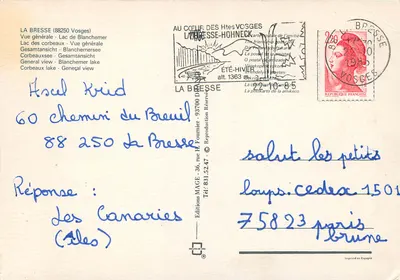 LA BRESSE (88250 Vosges)
Vue générale - Lac de Blanchemer
Lac des corbeaux - Vue générale
General view - Blanchemer lake
Corbeaux lake - General view
AU CŒUR DES Htes VOSGES
LA BRESSE-HOHNECK
ÉTÉ-HIVER
alt. 1363 m
LA BRESSE
22-10-85
LA BRESSE
VOSGES
Ascul Krid
60 Chemin du Breuil
88 250 La Bresse
Réponse :
Les Canaries
(Iles)
Editions MAGE - 36, rue H. Fournier -
Tél. 831.52.47 - © Reproduction Réservée
salut les petits
loups. cedex 1501
75823 paris
brune